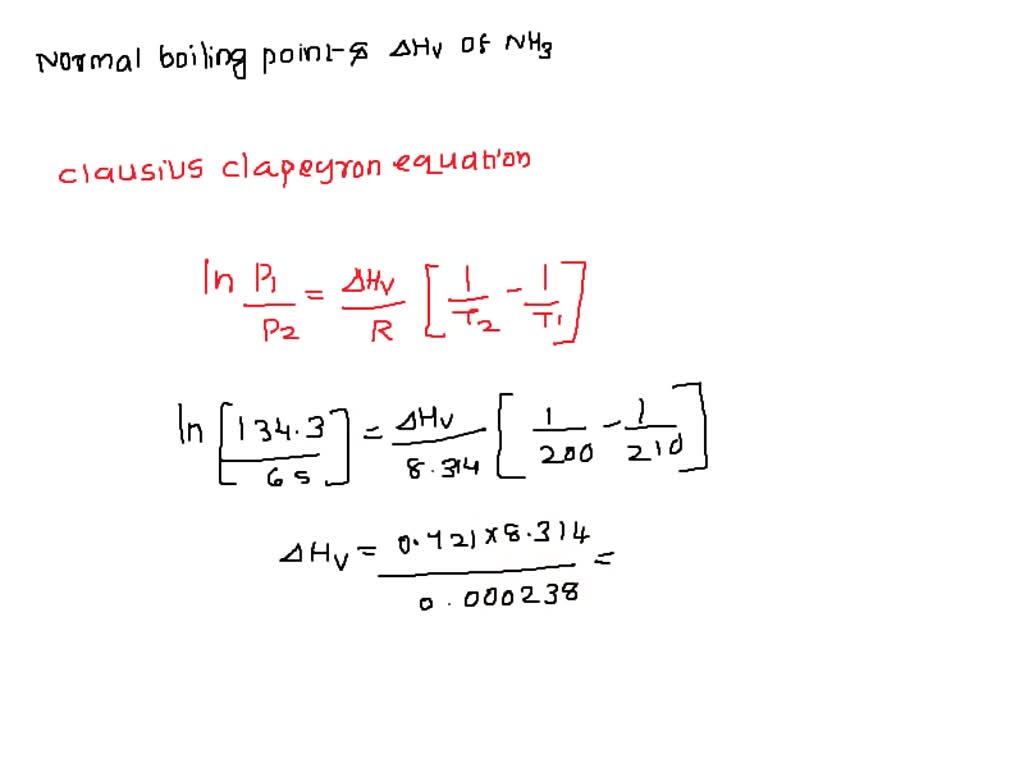 Normal boiling point & ΔHv of NH3
clausius clapeyron equation
ln P1/P2 = ΔHv/R [1/T2 - 1/T1]
ln [134.3/65] = ΔHv/8.314 [1/200 - 1/210]
ΔHv = 0.721×8.314/0.000238 =